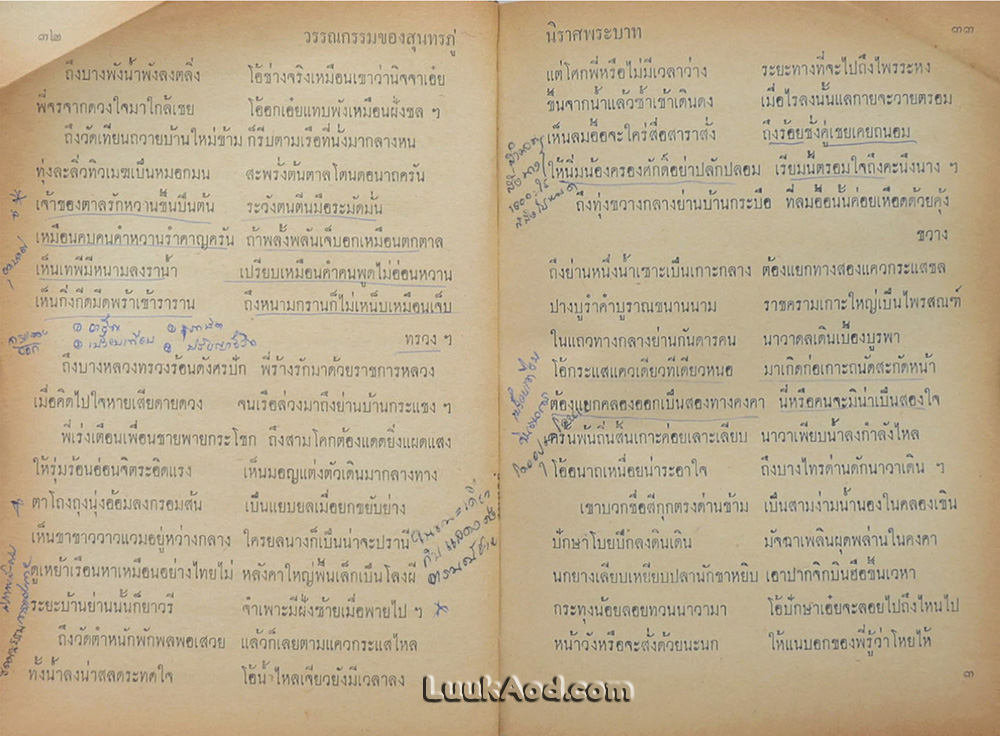 ๓๒ วรรณกรรมของสุนทรภู่
ถึงบางพังน้ำพังลงตลิ่ง โอ้ช่างจริงเหมือนเขาว่านิจจาเอ๋ย
พี่จรจากดวงใจมาไกลเชย โอ้อกเอ๋ยแทบพังเหมือนฝั่งชล ฯ
ถึงวัดเทียนถวายบ้านใหม่ข้าม ก็รีบตามเรือที่นั่งมากลางหน
ทุ่งละลิ่วทิวเมฆเป็นหมอกมน สะพรั่งต้นตาลโตนดอนาถครัน
เจ้าของตาลรักหวานขึ้นปีนต้น ระวังตนตีนมือระมัดมั่น
เหมือนคบคนคำหวานรำคาญครัน ถ้าพลั้งพลันเจ็บอกเหมือนตกตาล
เห็นเทพีมีหนามลงราน้ำ เปรียบเหมือนคำคนพูดไม่อ่อนหวาน
เห็นกิ่งกีดมีดพร้าเข้าราราน ถึงหนามกรานก็ไม่เหน็บเหมือนเจ็บ
ทรวง ฯ
ถึงบางหลวงทรวงร้อนดังศรปัก พี่ร้างรักมาด้วยราชการหลวง
เมื่อคิดไปใจหายเสียดายดวง จนเรือล่วงมาถึงย่านบ้านกระแชง ฯ
พี่เร่งเตือนเพื่อนชายพายกระโชก ถึงสามโคกต้องแดดยิ่งแผดแสง
ให้รุ่มร้อนอ่อนจิตระอิดแรง เห็นมอญแต่งตัวเดินมากลางทาง
ตาโถงถุงนุ่งอ้อมลงกรอมส้น เป็นแยบยลเมื่อยกขยับย่าง
เห็นขาขาววาวแวมอยู่หว่างกลาง ใครยลนางก็เป็นน่าจะปรานี
ดูเหย้าเรือนหาเหมือนอย่างไทยไม่ หลังคาใหญ่พื้นเล็กเป็นโลงผี
ระยะบ้านย่านนั้นก็ยาวรี จำเพาะมีฝั่งซ้ายเมื่อพายไป ฯ
ถึงวัดตำหนักพักพลพอเสวย แล้วก็เลยตามแควกระแสไหล
ทั้งน้ำลงน่าสลดระทดใจ โอ้น้ำไหลเจียวยังมีเวลาลง
นิราศพระบาท ๓๓
แต่โศกพี่หรือไม่มีเวลาว่าง ระยะทางที่จะไปถึงไพรระหง
ขึ้นจากน้ำแล้วซ้ำเข้าเดินดง เมื่อไรลงนั้นแลกายจะวายตรอม
เห็นลมอื้อจะใคร่สื่อสาราสั่ง ถึงร้อยชั่งคู่เชยเคยถนอม
ให้นิ่มน้องครองศักดิ์อย่าปลักปลอม เรียมนี้ตรอมใจถึงคะนึงนาง ฯ
ถึงทุ่งขวางกลางย่านบ้านกระบือ ที่ลมอื้อนั้นค่อยเหือดด้วยคุ้ง
ขวาง
ถึงย่านหนึ่งน้ำเซาะเป็นเกาะกลาง ต้องแยกทางสองแควกระแสชล
ปางบุรำคำบุราณขนานนาม ราชครามเกาะใหญ่เป็นไพรสณฑ์
ในแถวทางกลางย่านกันดารคน นาวาดลเดินเบื้องบูรพา
โอ้กระแสแควเดียวทีเดียวหนอ มาเกิดก่อเกาะถนัดสะกัดหน้า
ต้องแยกคลองออกเป็นสองทางคงคา นี่หรือคนจะมิน่าเป็นสองใจ
ครั้นพ้นถิ่นสิ้นเกาะค่อยเลาะเลียบ นาวาเพียบน้ำลงกำลังไหล
โอ้อนาถเหนื่อยน่าระอาใจ ถึงบางไทรด่านดักนาวาเดิน ฯ
เขาบวกชื่อสีกุกตรงด่านข้าม เป็นสามง่ามน้ำนองในคลองเขิน
ปักษาโบยปีกลงดินเดิน มัจฉาเพลินผุดพล่านในคงคา
นกยางเลียบเหยียบปลานักขาหยิบ เอาปากจิกบินฮือขึ้นเวหา
กระทุงน้อยลอยทวนนาวามา โอ้ปักษาเอ๋ยจะลอยไปถึงไหนไป
หน้าวังหรือจะสั่งด้วยนะนก ให้แนบอกของพี่รู้ว่าโหยไห้
๓
LuukAod.com